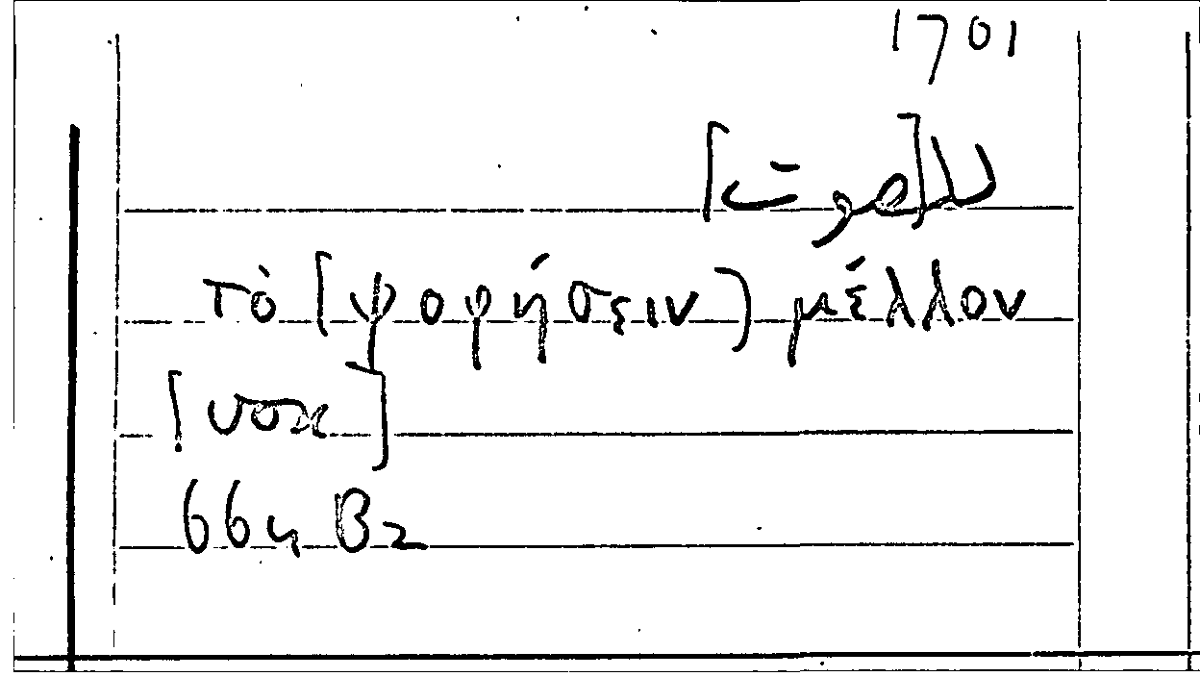 1701
لل[صوت]
τὸ [ψοφήσειν) μέλλον
[vox]
664 B2